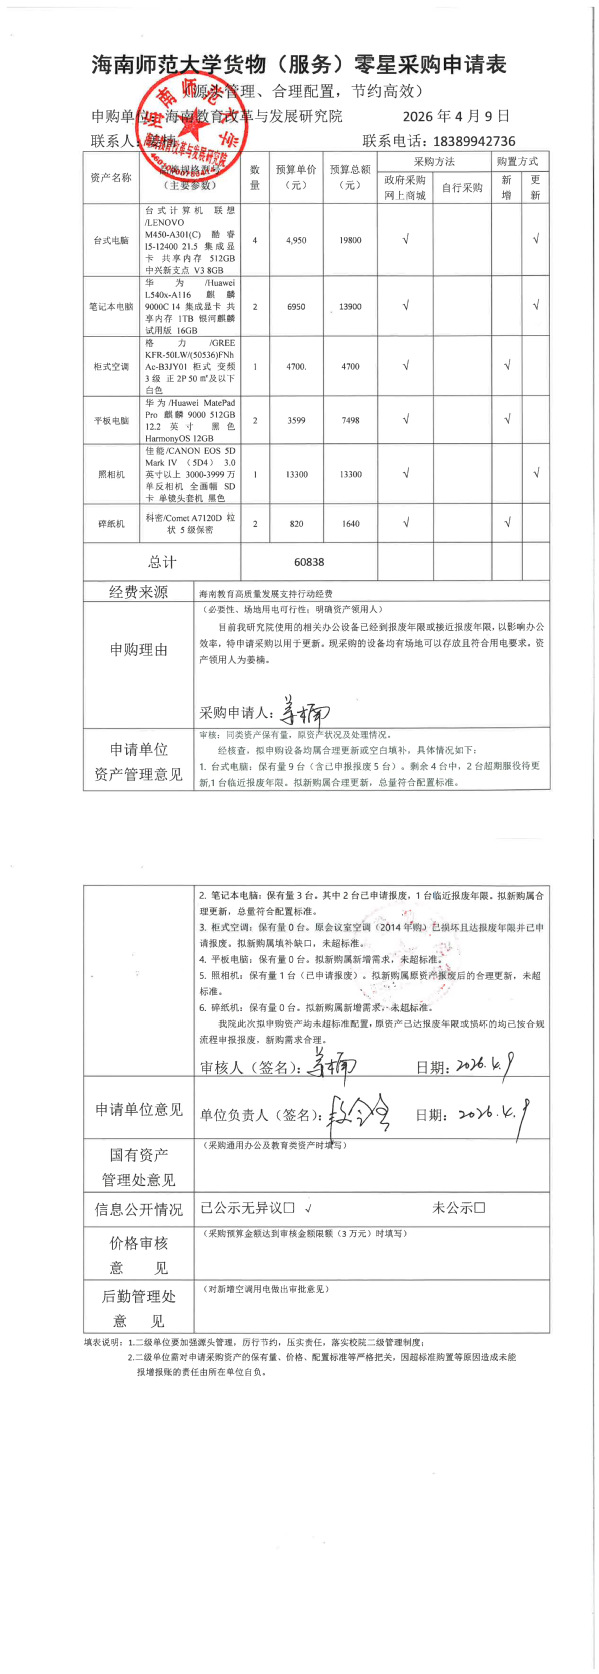 海南师范大学货物（服务）零星采购申请表
（源头管理、合理配置，节约高效）
申购单位：海南教育改革与发展研究院 2026 年 4 月 9 日
联系人：姜楠 联系电话：18389942736
资产名称 （主要参数） 数量 预算单价（元） 预算总额（元） 采购方法 购置方式
政府采购网上商城 自行采购 新增 更新
台式电脑 台式计算机 联想/LENOVO M450-A301(C) 酷睿 I5-12400 21.5 集成显卡 共享内存 512GB 中兴新支点 V3 8GB 4 4,950 19800 √ √
笔记本电脑 华为/Huawei L540x-A116 麒麟 9000C 14 集成显卡 共享内存 1TB 银河麒麟试用版 16GB 2 6950 13900 √ √
柜式空调 格力/GREE KFR-50LW/(50536)FNhAc-B3JY01 柜式 变频 3 级 正 2P 50 ㎡及以下 白色 1 4700. 4700 √ √
平板电脑 华为/Huawei MatePad Pro 麒麟 9000 512GB 12.2 英寸 黑色 HarmonyOS 12GB 2 3599 7498 √ √
照相机 佳能/CANON EOS 5D Mark IV （5D4） 3.0 英寸以上 3000-3999 万 单反相机 全画幅 SD 卡 单镜头套机 黑色 1 13300 13300 √ √
碎纸机 科密/Comet A7120D 粒状 5 级保密 2 820 1640 √ √
总计 60838
经费来源 海南教育高质量发展支持行动经费
申购理由 （必要性、场地用电可行性；明确资产领用人）
目前我研究院使用的相关办公设备已经到报废年限或接近报废年限，以影响办公
效率，特申请采购以用于更新。现采购的设备均有场地可以存放且符合用电要求，资
产领用人为姜楠。
采购申请人：姜楠
申请单位
资产管理意见
审核：同类资产保有量，原资产状况及处理情况。
经核查，拟申购设备均属合理更新或空白填补，具体情况如下：
1. 台式电脑：保有量 9 台（含已申报报废 5 台）。剩余 4 台中，2 台超期服役待更
新,1 台临近报废年限。拟新购属合理更新，总量符合配置标准。
2. 笔记本电脑：保有量 3 台。其中 2 台已申请报废，1 台临近报废年限。拟新购属合
理更新，总量符合配置标准。
3. 柜式空调：保有量 0 台。原会议室空调（2014 年购）已损坏且达报废年限并已申
请报废。拟新购属填补缺口，未超标准。
4. 平板电脑：保有量 0 台。拟新购属新增需求，未超标准。
5. 照相机：保有量 1 台（已申请报废）。拟新购属原资产报废后的合理更新，未超
标准。
6. 碎纸机：保有量 0 台。拟新购属新增需求，未超标准。
我院此次拟申购资产均未超标准配置，原资产已达报废年限或损坏的均已按合规
流程申报报废，新购需求合理。
审核人（签名）：姜楠 日期：2026.4.9
申请单位意见 单位负责人（签名）： 日期：2026.4.9
国有资产
管理处意见
（采购通用办公及教育类资产时填写）
信息公开情况 已公示无异议□ √ 未公示□
价格审核
意 见
（采购预算金额达到审核金额限额（3 万元）时填写）
后勤管理处
意 见
（对新增空调用电做出审批意见）
填表说明：1.二级单位要加强源头管理，厉行节约，压实责任，落实校院二级管理制度；
2.二级单位需对申请采购资产的保有量、价格、配置标准等严格把关，因超标准购置等原因造成未能
报增报账的责任由所在单位自负。